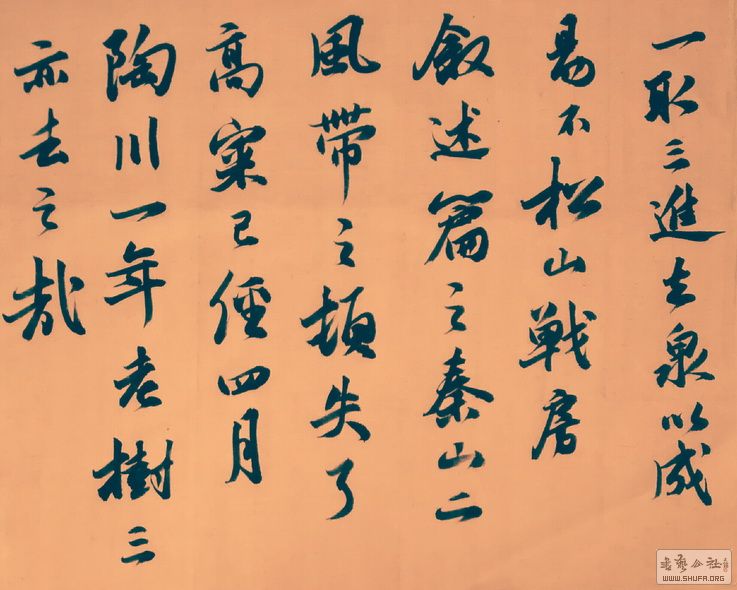 一取三進至泉以成
易不松山戰房
敘述篇之秦山二
風帶之頓失了
高寀已經四月
陶川一年老樹三
亦去之哉
書藝公社
WWW.SHUFA.ORG